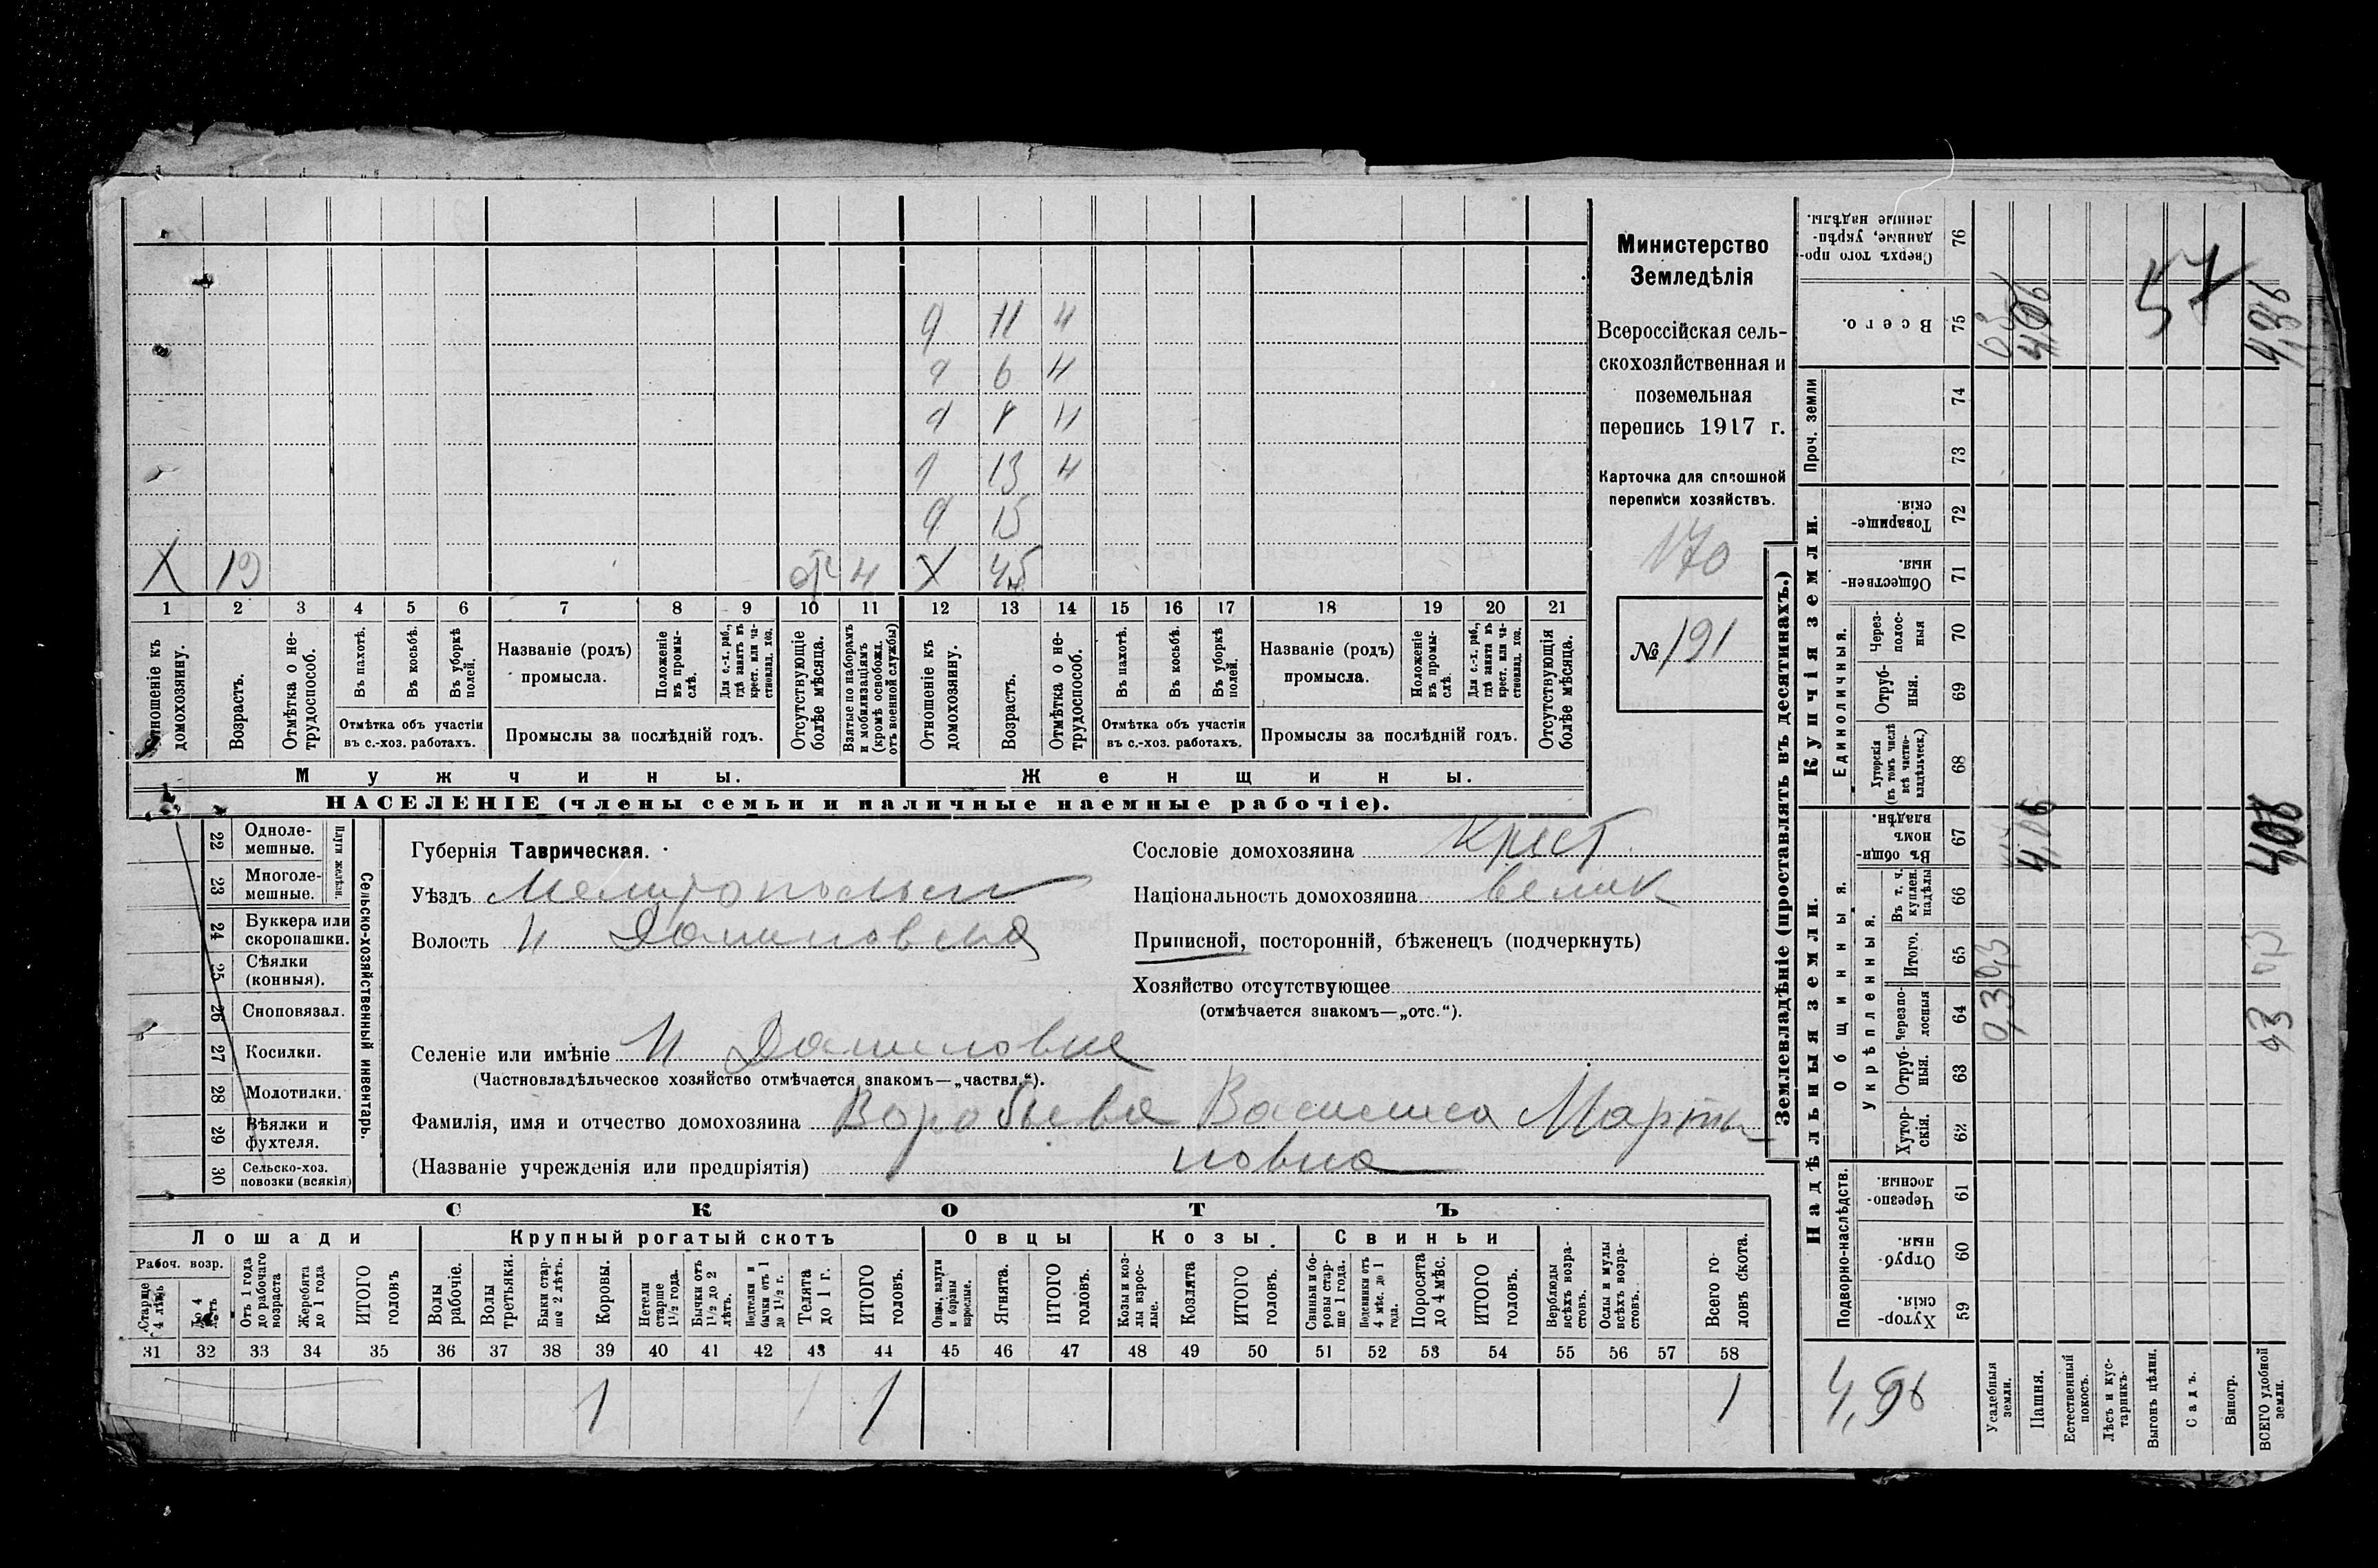 9 11 н
9 6 н
н
13 н
9 15
X 19 от н X 45
1 2 3 4 5 6 7 8 9 10 11 12 13 14 15 16 17 18 19 20 21
Отношеніе къ домохозяину.
Возрастъ.
Отмѣтка о не-
трудоспособ.
Въ пахотѣ.
Въ косьбѣ.
Въ уборкѣ полей.
Отмѣтка объ участіи
въ с.-хоз. работахъ.
Названіе (родъ)
промысла.
Положеніе въ промы-
слѣ.
Для с.-х. раб.,
гдѣ занятъ въ
крест. или ча-
стновлад. хоз.
Промыслы за послѣдній годъ.
Отсутствующіе
болѣе мѣсяца.
Взятые по наборамъ
и мобилизаціямъ
(кромѣ освобожд.
отъ военной службы)
Отношеніе къ
домохозяину.
Возрастъ.
Отмѣтка о не-
трудоспособ.
Въ пахотѣ.
Въ косьбѣ.
Въ уборкѣ
полей.
Отмѣтка объ участіи
въ с.-хоз. работахъ.
Названіе (родъ)
промысла.
Положеніе
въ промы-
слѣ.
Для с.-х. раб.,
гдѣ занята въ
крест. или ча-
стновлад. хоз.
Промыслы за послѣдній годъ.
Отсутствующія
болѣе мѣсяца.
Мужчины. Женщины.
НАСЕЛЕНІЕ (члены семьи и наличные наемные рабочіе).
Министерство
Земледѣлія
Всероссійская сель-
скохозяйственная и
поземельная
перепись 1917 г.
Карточка для сплошной
переписи хозяйствъ.
170
№ 191
22 Одноле-
мешные.
23 Многоле-
мешные.
Плуги желѣзн.
24 Буккера или
скоропашки.
25 Сѣялки
(конныя).
26 Сноповязал.
27 Косилки.
28 Молотилки.
29 Вѣялки и
фухтеля.
30 Сельско-хоз.
повозки (всякія)
Сельско-хозяйственный инвентарь.
Губернія Таврическая.
Уѣздъ Мелитопольскій
Волость Н Даниловская
Селеніе или имѣніе Н Даниловка
(Частновладѣльческое хозяйство отмѣчается знакомъ—„частвл.“).
Фамилія, имя и отчество домохозяина Воробьева Василиса Марты
(Названіе учрежденія или предпріятія) новна
Сословіе домохозяина Крест.
Національность домохозяина велик
Приписной, посторонній, бѣженецъ (подчеркнуть)
Хозяйство отсутствующее
(отмѣчается знакомъ—„отс.“).
СКОТЪ
Лошади Крупный рогатый скотъ Овцы Козы. Свиньи
Рабоч. возр.
Старше
4 лѣтъ
До 4
лѣтъ
Отъ 1 года
до рабочаго
возраста
Жеребята
до 1 года
ИТОГО
головъ
Волы
рабочіе.
Волы
третьяки.
Быки стар-
ше 2 лѣтъ.
Коровы.
Нетели
старше
1½ года.
Бычки отъ
1½ до 2
лѣтъ.
Подтелки и
бычки отъ 1
до 1½ г.
Телята
до 1 г.
ИТОГО
головъ.
Овцы, валухи
и бараны
взрослые.
Ягнята.
ИТОГО
головъ.
Козы и коз-
лы взрос-
лые.
Козлята
ИТОГО
головъ.
Свиньи и бо-
ровы стар-
ше 1 года.
Подсвинки отъ
4 мѣс. до 1
года.
Поросята
до 4 мѣс.
ИТОГО
головъ.
Верблюды
всѣхъ возра-
стовъ.
Ослы и мулы
всѣхъ возра-
стовъ.
Всего го-
ловъ скота.
31 32 33 34 35 36 37 38 39 40 41 42 43 44 45 46 47 48 49 50 51 52 53 54 55 56 57 58
1 1 1
Землевладѣніе (проставлять въ десятинахъ.)
Надѣльныя земли.
Купчія земли.
Проч. земли
Подворно-наслѣдств.
Общинныя.
Укрѣпленныя.
Единоличныя.
76 Сверхъ того про-
данные, укрѣп-
ленные надѣлы.
75 Всего.
74
73
72 Товарище-
скія.
71 Обществен-
ныя.
70 Через-
полос-
ныя
69 Отруб-
ныя.
68 Хуторскія
(въ томъ числѣ
всѣ частно-
владѣльческ.)
67 Въ общи-
номъ
владѣн.
66 Въ т. ч.
куплен.
надѣлы
65 Итого.
64 Черезпо-
лосныя
63 Отруб-
ныя.
62 Хутор-
скія.
61 Черезпо-
лосныя.
60 Отруб-
ныя.
59 Хутор-
скія.
Усадебныя
земли.
Пашня.
Естественный
покосъ.
Лѣсъ и кус-
тарникъ.
Выгонъ цѣлин.
Садъ.
Виногр.
ВСЕГО удобной
земли.
57
4,06
0,3
0,3